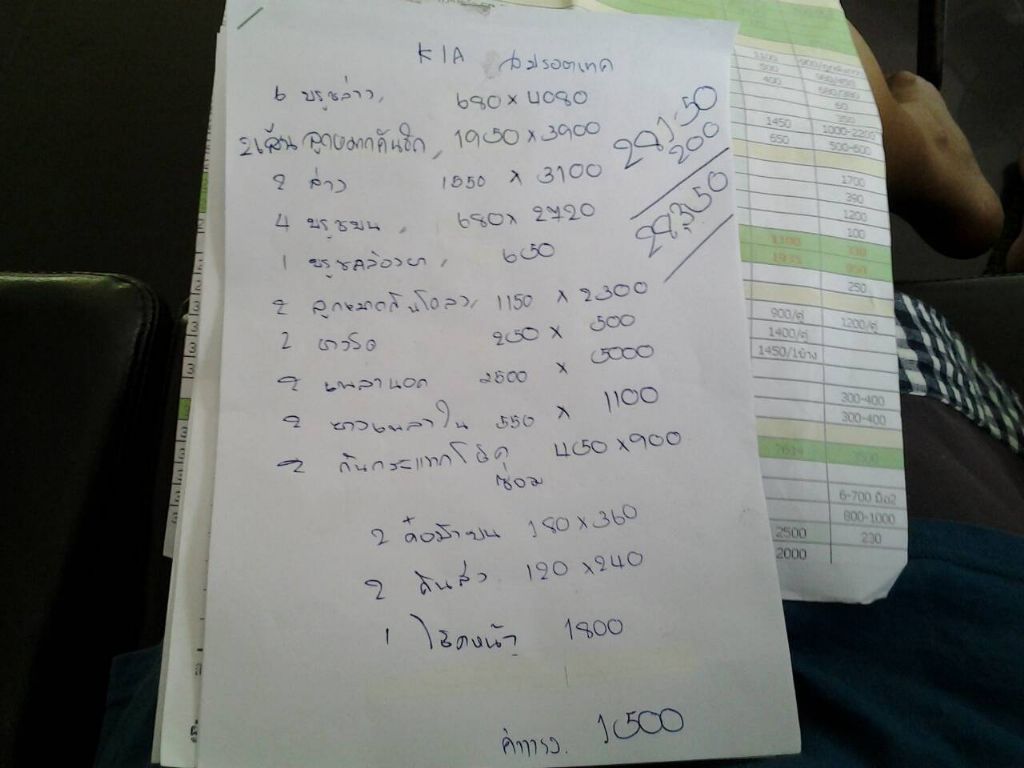 KIA สปรอตเทค
6 บูชล่าง, 680 x 4080
2เส้น ลูกหมากคันชัก, 1950 x 3900
2 ล่าง 1550 x 3100
4 บูชบน, 680 x 2720
1 บูชคล้องขา, 650
2 ลูกหมากกันโคลง, 1150 x 2300
2 250 x 500
2 เพลานอก 2500 x 5000
2 ยางเพลาใน 550 x 1100
2 กันกระแทกโช๊ค 450 x 900
ซ่อม
2 บน 180 x 360
2 120 x 240
1 โช๊คหน้า 1800
ค่าแรง. 1500
28,150
200
28,350
1100
500
400
680/380
60
350
1450
1000-2200
650
500-600
1700
390
1200
100
1100
250
900/คู่
1200/คู่
1400/คู่
1450/1ข้าง
300-400
300-400
6-700 มิล2
800-1000
2500
230
2000